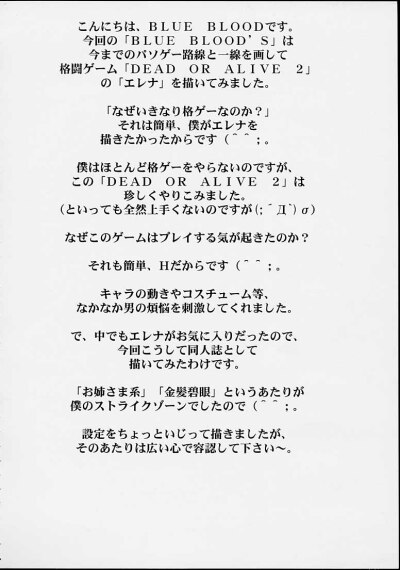 こんにちは、ＢＬＵＥ　ＢＬＯＯＤです。
今回の「ＢＬＵＥ　ＢＬＯＯＤ’Ｓ」は
今までのパソゲー路線と一線を画して
格闘ゲーム「ＤＥＡＤ　ＯＲ　ＡＬＩＶＥ　２」
の「エレナ」を描いてみました。
「なぜいきなり格ゲーなのか？」
それは簡単、僕がエレナを
描きたかったからです（＾＾；。
僕はほとんど格ゲーをやらないのですが、
この「ＤＥＡＤ　ＯＲ　ＡＬＩＶＥ　２」は
珍しくやりこみました。
（といっても全然上手くないのですが(;´Д`)σ）
なぜこのゲームはプレイする気が起きたのか？
それも簡単、Ｈだからです（＾＾；。
キャラの動きやコスチューム等、
なかなか男の煩悩を刺激してくれました。
で、中でもエレナがお気に入りだったので、
今回こうして同人誌として
描いてみたわけです。
「お姉さま系」「金髪碧眼」というあたりが
僕のストライクゾーンでしたので（＾＾；。
設定をちょっといじって描きましたが、
そのあたりは広い心で容認して下さい～。